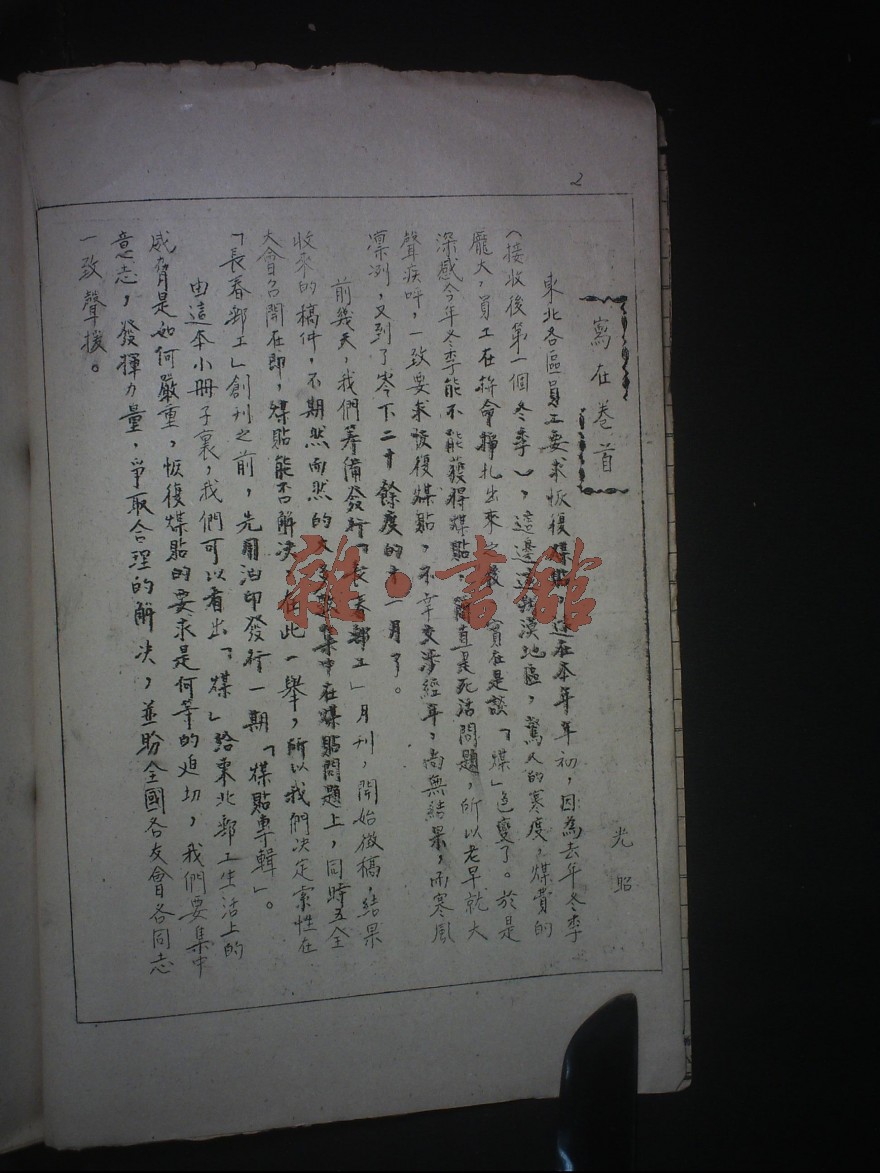 2
寫在卷首
光昭
東北各區員工要求恢復煤貼遠在本年年初，因為去年冬季
（接收後第一個冬季），這邊這荒漠地區，驚人的寒度，煤費的
龐大，員工在拚命掙扎出來之後，實在是談「煤」色變了。於是
深感今年冬季能不能獲得煤貼，簡直是死活問題，所以老早就大
聲疾呼，一致要求恢復煤貼，不幸交涉經年，尚無結果，而寒風
凛冽，又到了零下二十餘度的十一月了。
前幾天，我們籌備發行「長春郵工」月刊，開始徵稿，結果
收來的稿件，不期然而然的大多集中在煤貼問題上，同時五全
大會召開在即，煤貼能否解決，在此一舉，所以我們決定索性在
「長春郵工」創刊之前，先用油印發行一期「煤貼專輯」。
由這本小冊子裏，我們可以看出「煤」給東北郵工生活上的
威脅是如何嚴重，恢復煤貼的要求是何等的迫切，我們要集中
意志，發揮力量，爭取合理的解決，並盼全國各友會各同志
一致聲援。
雜·書館